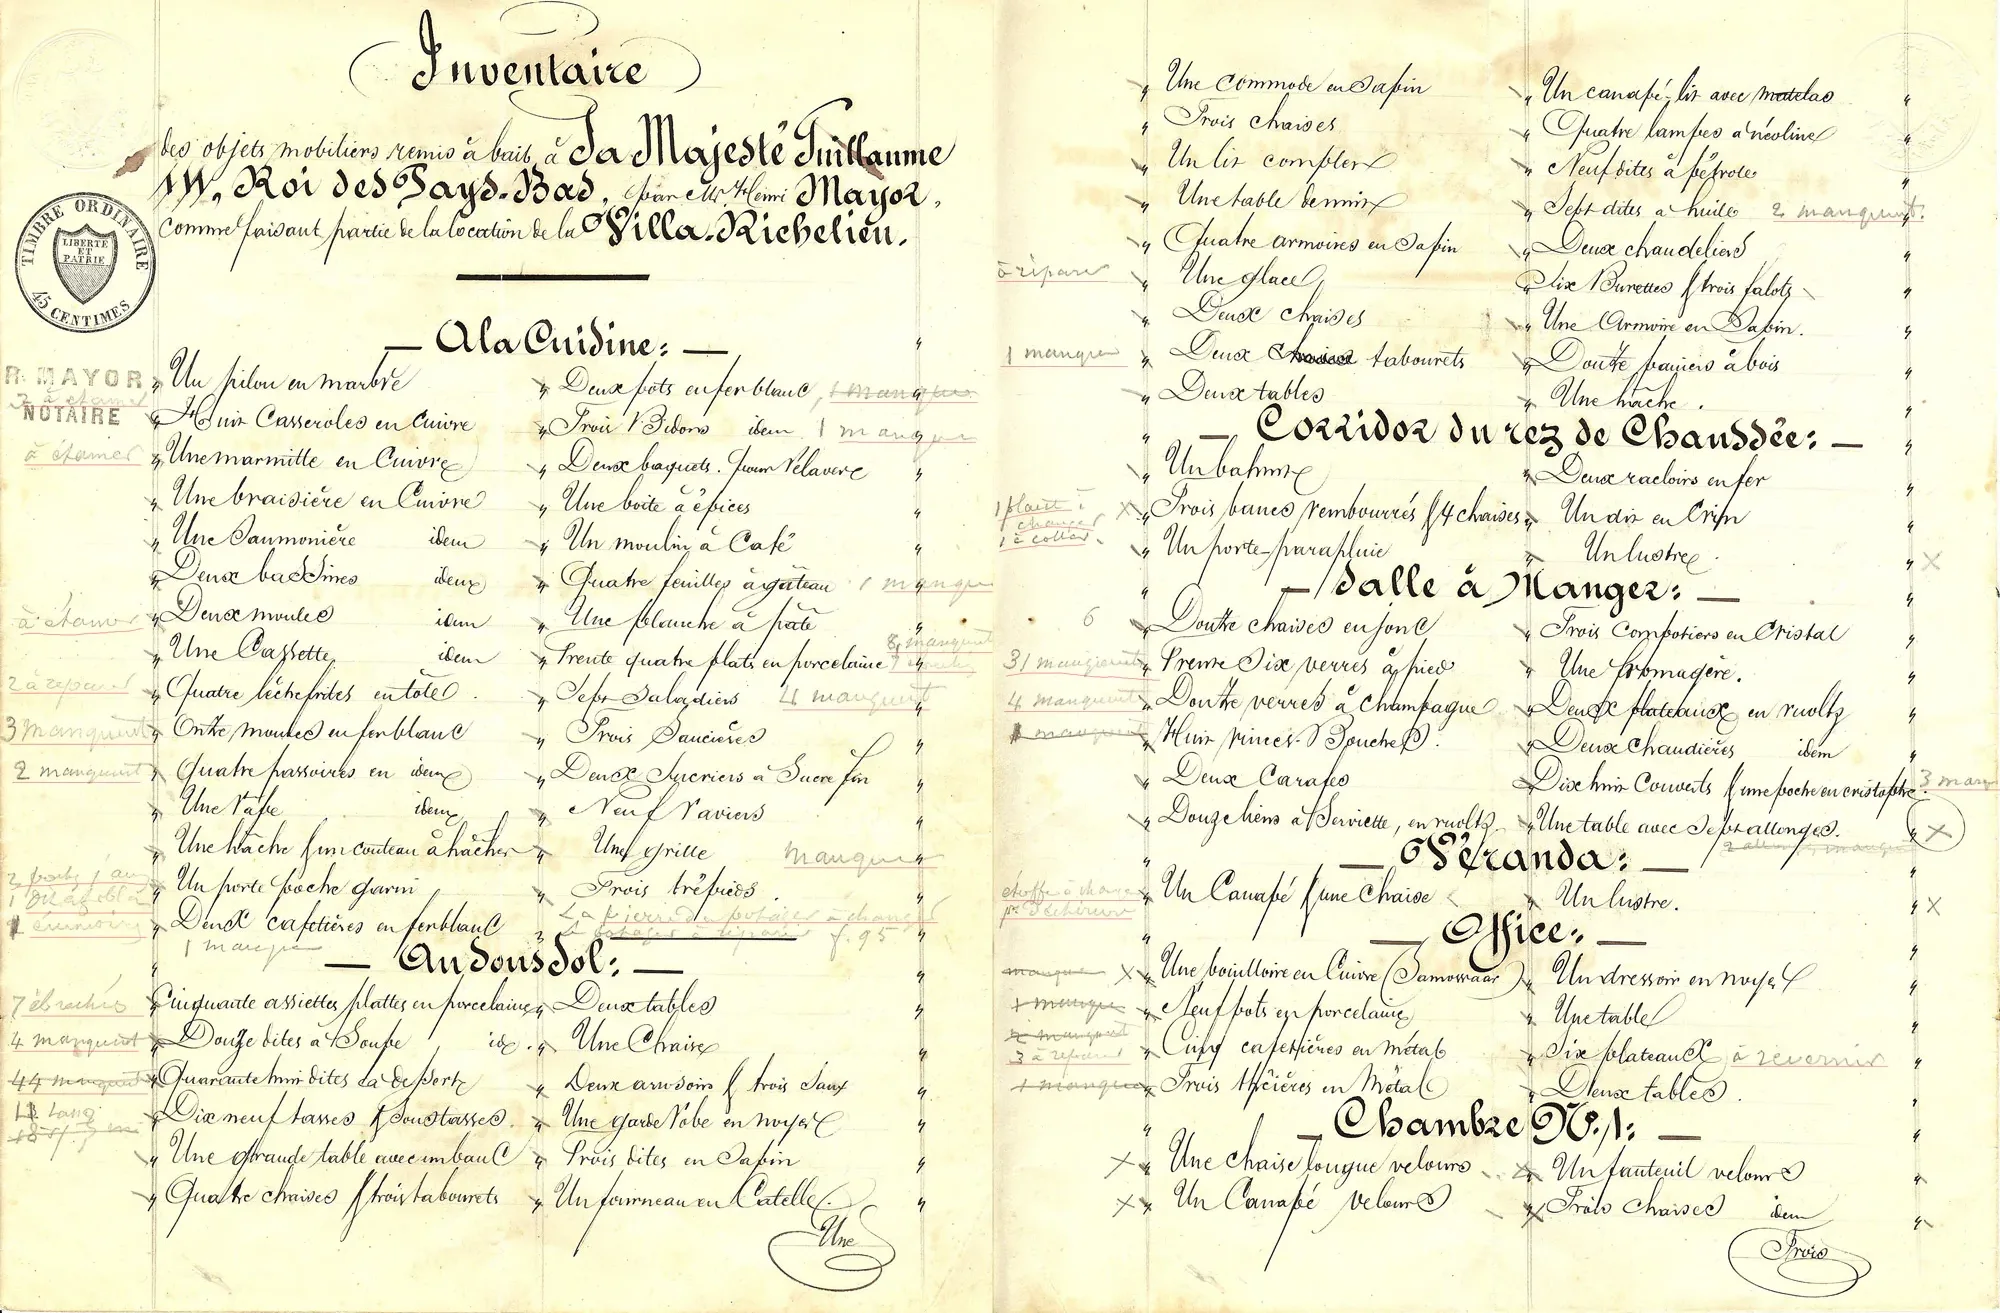 Inventaire
des objets mobiliers remis à bail, à Sa Majesté Guillaume
III, Roi des Pays-Bas, par Mr. Henri Mayor,
comme faisant partie de la location de la Villa-Richelieu.
TIMBRE ORDINAIRE
LIBERTÉ
ET
PATRIE
45 CENTIMES
R. MAYOR
NOTAIRE
— A la Cuisine: —
Un pilon en marbre
Huit Casseroles en Cuivre
à étamer
Une marmitte en Cuivre
Une braisière en Cuivre
Une Saumonière idem
Deux bassines idem
à étamer Deux moules idem
Une Cassette idem
2 à réparer Quatre lêchefrites en tôle.
3 manquent Onze moules en fer blanc
2 manquent Quatre passoires en idem
Une Râpe idem
Une hâche & un couteau à hâcher
Un porte poche garni
Deux cafetières en fer blanc
1 manque
Deux pots en fer blanc, 1 manque
Trois Bidons idem 1 manque
Deux baquets pour relavure
Une boîte à épices
Un moulin à Café
Quatre feuilles à gâteau 1 manque
Une planche à pâte
8 manquent
Trente quatre plats en porcelaine
Sept Saladiers 4 manquent
Trois Saucières
Deux Sucriers à Sucre fin
Neuf Raviers
Une grille manque
Trois trépieds.
La pierre du potager à changer
Le potager à réparer f. 95
— Au Sous Sol: —
7 ébrachées Cinquante assiettes plattes en porcelaine
4 manquent Douze dites à Soupe id.
44 manquent Quarante huit dites à dessert
Dix neuf tasses & sous tasses.
Une grande table avec un banc
Quatre chaises & trois tabourets
Deux tables
Une Chaise
Deux arrosoirs & trois Seaux
Une garde Robe en noyer
Trois dites en Sapin
Un fourneau en Catelle.
Une
Une commode en Sapin
Trois chaises
Un lit complet
Une table de nuit
Quatre armoires en Sapin
à réparer Une glace
Deux chaises
1 manque Deux chaises tabourets
Deux tables
Un canapé-lit avec matelas
Quatre lampes à néoline
Neuf dites à pétrole
Sept dites à huile 2 manquent.
Deux chandeliers
Six Burettes & trois falots
Une Armoire en Sapin.
Douze paniers à bois
Une hâche.
— Corridor du rez de Chaussée: —
Un bahut
Trois bancs rembourrés & 4 chaises
Un porte-parapluie
Deux racloirs en fer
Un dit en Crin
Un lustre.
— Salle à Manger: —
6 Douze chaises en jonc
31 manquent Trente Six verres à pied
4 manquent Douze verres à champagne
1 manque Huit rinces-Bouches.
Deux Carafes
Douze liens à Serviette, en ruoltz
Trois Compotiers en Cristal
Une fromagère.
Deux plateaux en ruoltz
Deux Chaudières idem
Dix huit Couverts & une poche en cristophe. 3 manq
Une table avec Sept allonges.
— Véranda: —
étoffe à changer
Un Canapé & une Chaise
Un lustre.
— Office: —
manque Une bouilloire en Cuivre (Samowaar)
1 manque Neuf pots en porcelaine
2 manquent
3 à réparer Cinq cafetières en Métal
1 manque Trois théières en Métal
Un dressoir en noyer
Une table
Six plateaux à revernir
Deux tables.
— Chambre No. 1: —
Une chaise longue velours
Un Canapé velours
Un fauteuil velours
Trois chaises idem
Trois